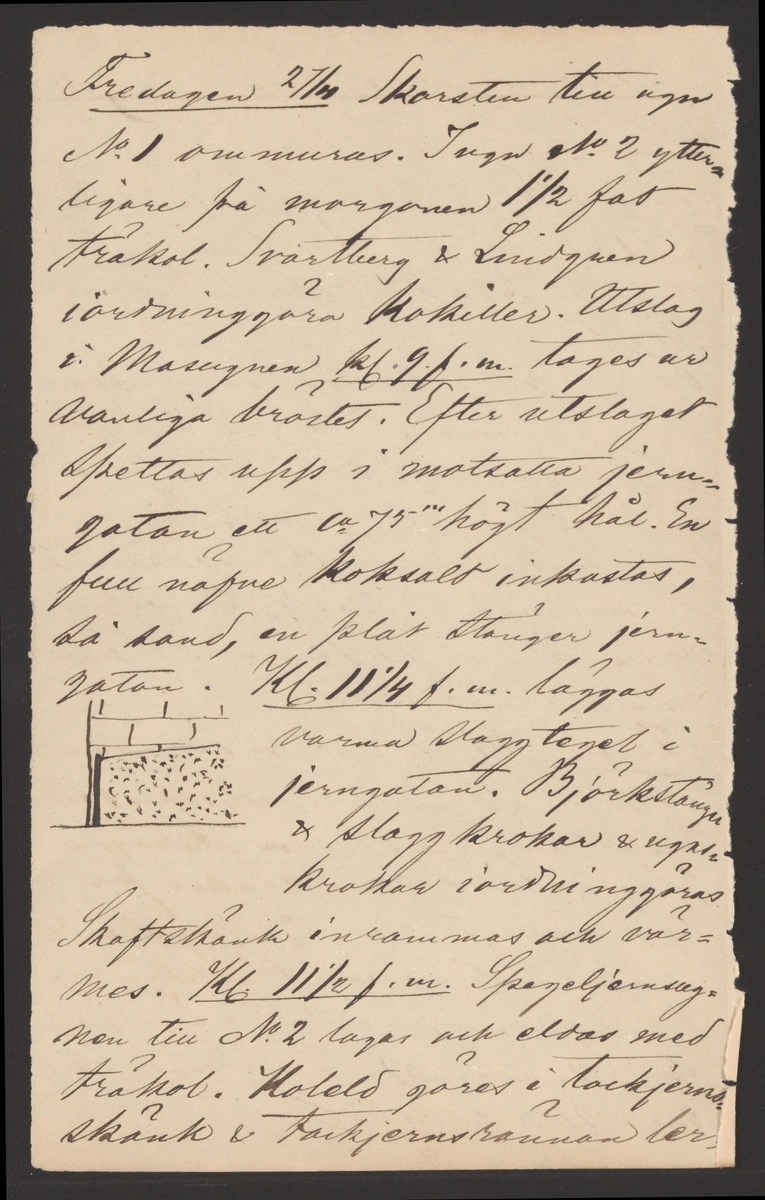 Fredagen 27/4 Skorsten till ugn
No. 1 ommuras. I ugn No. 2 ytter-
ligare på morgonen 1 1/2 fat
träkol. Svartberg & Lindgren
iordninggöra Kokiller. Utslag
i Masugnen kl. 9 f.m. tages ur
vanliga bröstet. Efter utslaget
spettas upp i motsatta jern-
gatan ett ca 75''' högt hål. En
full näfve Koksalt inkastas,
så sand, en plåt stänger jern-
gatan. Kl. 11 1/4 f.m. läggas
varma slaggtegel i
jerngatan. Björkstänger
& slaggkrokar & ugns-
krokar iordninggöras
Skaftskänk inrammas och vär-
mes. Kl. 11 1/2 f.m. Spegeljernsug-
nen till No. 2 lagas och eldas med
träkol. Koleld göres i tackjerns-
skänk & Tackjernsrännan ler-